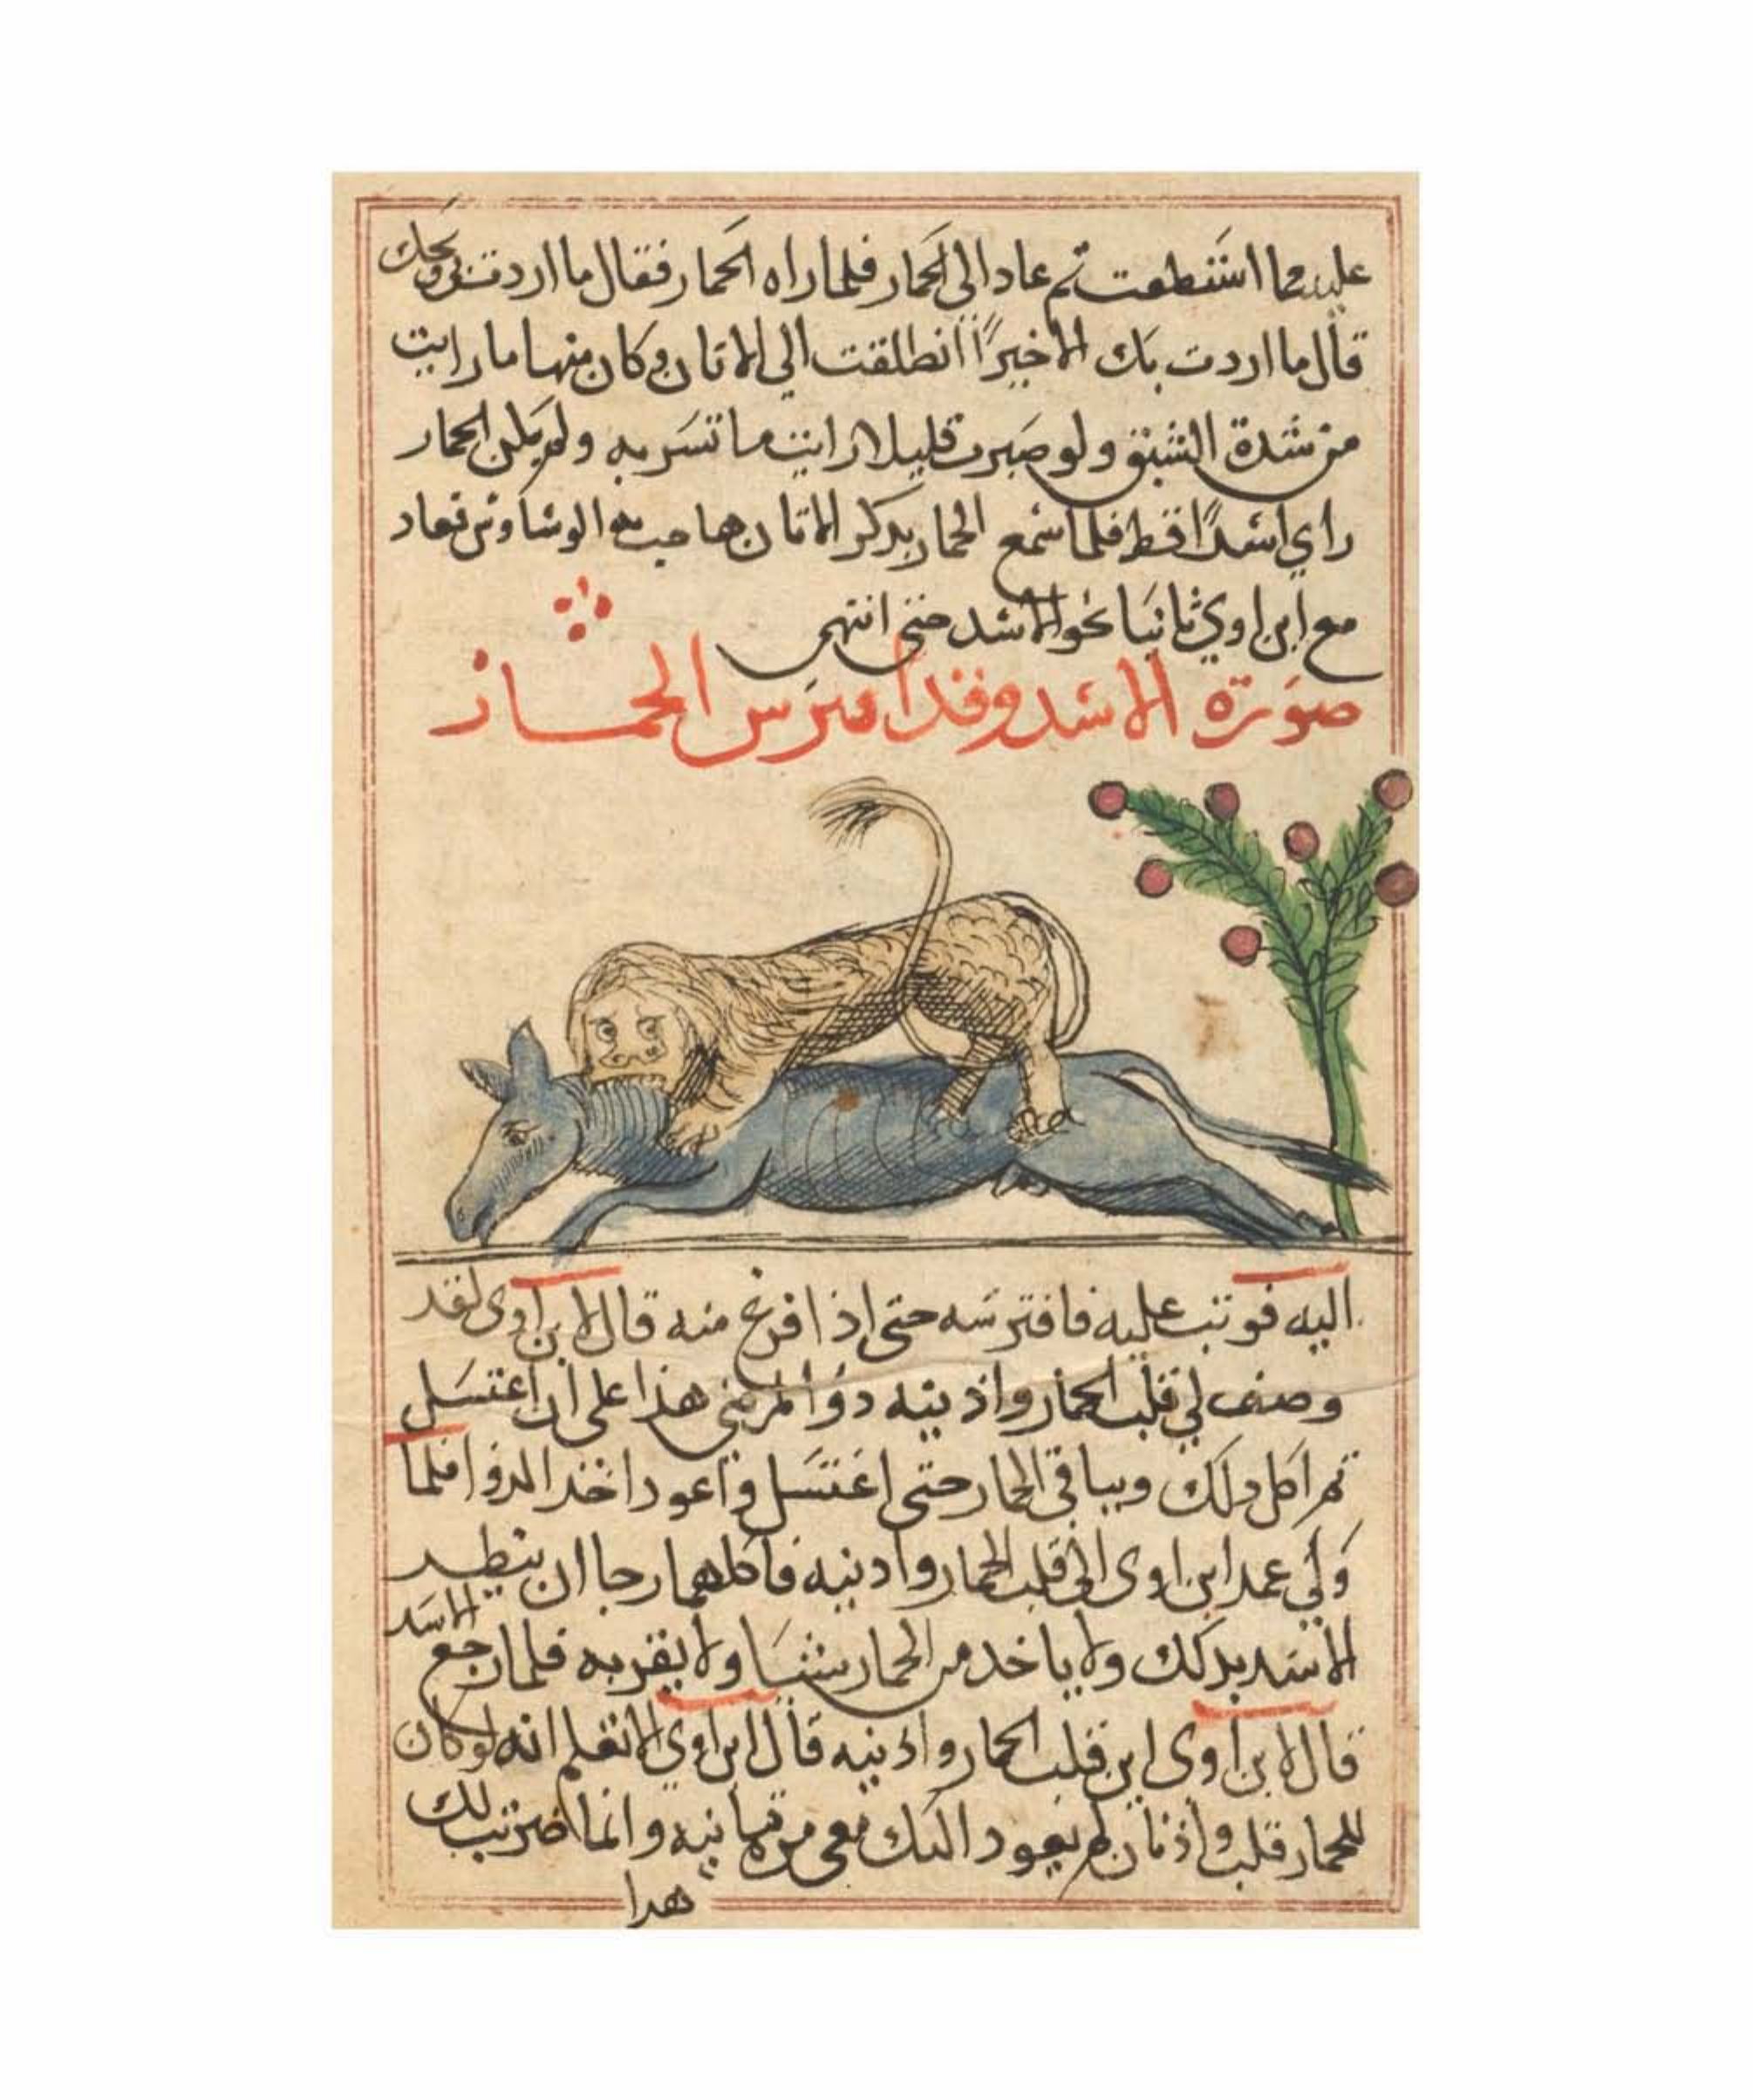 عليهما استطعت ثم عاد الى الحمار فلما راه الحمار فقال ما اردت بى ويحك
قال ما اردت بك الا خيرًا انطلقت الي الاتان وكان منها ما رايت
من شدة الشبق ولو صبرت قليلا لرايت ما تسر به ولم يكن الحمار
راي اسدًا قط فلما سمع الحمار بدكر الاتان هاجت به فعاد
مع ابن اوي ثانيا نحو الاسد حتى انتهى
صورة الاسد وقد افترس الحمار
اليه فوثب عليه فافترسه حتى اذا فرغ منه قال لابن اوى لقد
وصف لي قلب الحمار واذنيه دوا لمرضي هذا على ان اغتسل
ثم اكل دلك وبباقي الحمار حتى اغتسل واعود اخد الدوا فلما
ولي عمد ابن اوى الى قلب الحمار وادنيه فاكلهما رجا ان يتطير
الاسد بدلك ولا ياخد من الحمار شيا ولا يقربه فلما رجع الاسد
قال لابن اوى اين قلب الحمار واذنيه قال ابن اوي الا تعلم انه لو كان
للحمار قلب واذنان لم يعود اليك معي مرة ثانيه وانما ضربت لك
هدا